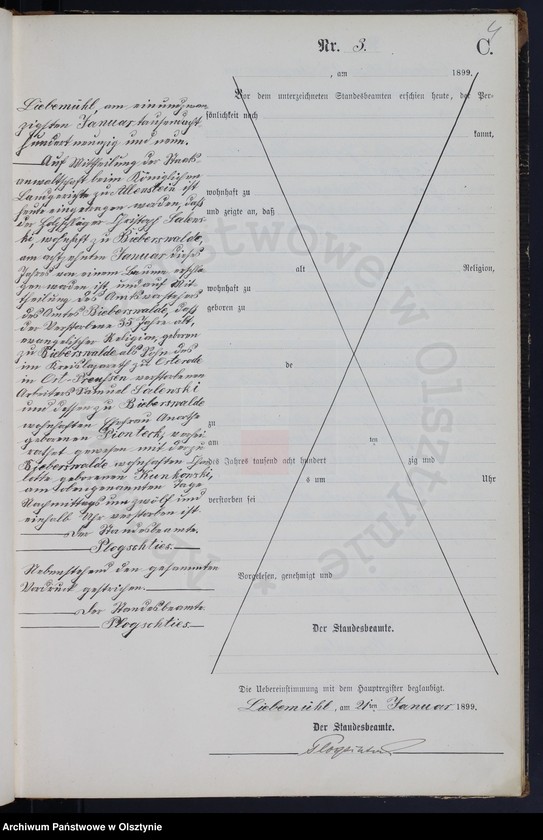 4
Nr. 3.
C.
, am 1899.
Vor dem unterzeichneten Standesbeamten erschien heute, der Per-
sönlichkeit nach
kannt,
wohnhaft zu
und zeigte an, daß
alt
Religion,
wohnhaft zu
geboren zu
de
zu
am ten
des Jahres tausend acht hundert zig und
s um Uhr
verstorben sei
Vorgelesen, genehmigt und
Der Standesbeamte.
Liebemühl, am einundzwan
zigsten Januar tausendacht
hundert neunzig und neun.
Auf Mittheilung der Staats-
anwaltschaft beim Königlichen
Landgerichte zu Allenstein ist
heute eingetragen worden, daß
der Holzschläger Christoph Salews-
ki, wohnhaft zu Bieberswalde,
am achtzehnten Januar dieses
Jahres von einem Baume erschla
gen worden ist, und auf Mit
theilung des Amtsvorstehers
des Amtes Bieberswalde, daß
der Verstorbene 35 Jahre alt,
evangelischer Religion, geboren
zu Bieberswalde als Sohn des
im Kreislazareth zu Osterode
in Ost-Preußen verstorbenen
Arbeiters Samuel Salewski
und dessen zu Bieberswalde
wohnhaften Ehefrau
geborenen Piontek, verhei-
rathet gewesen mit der zu
Bieberswalde wohnhaften
lotte geborenen
am obengenannten Tage
Nachmittags um zwölf und
einhalb Uhr verstorben ist.
Der Standesbeamte.
Plogschties.
Nebenstehend den gesammten
Vordruck gestrichen.
Der Standesbeamte
Plogschties.
Die Uebereinstimmung mit dem Hauptregister beglaubigt.
Liebemühl, am 21ten Januar 1899.
Der Standesbeamte.
Plogschties
Archiwum Państwowe w Olsztynie